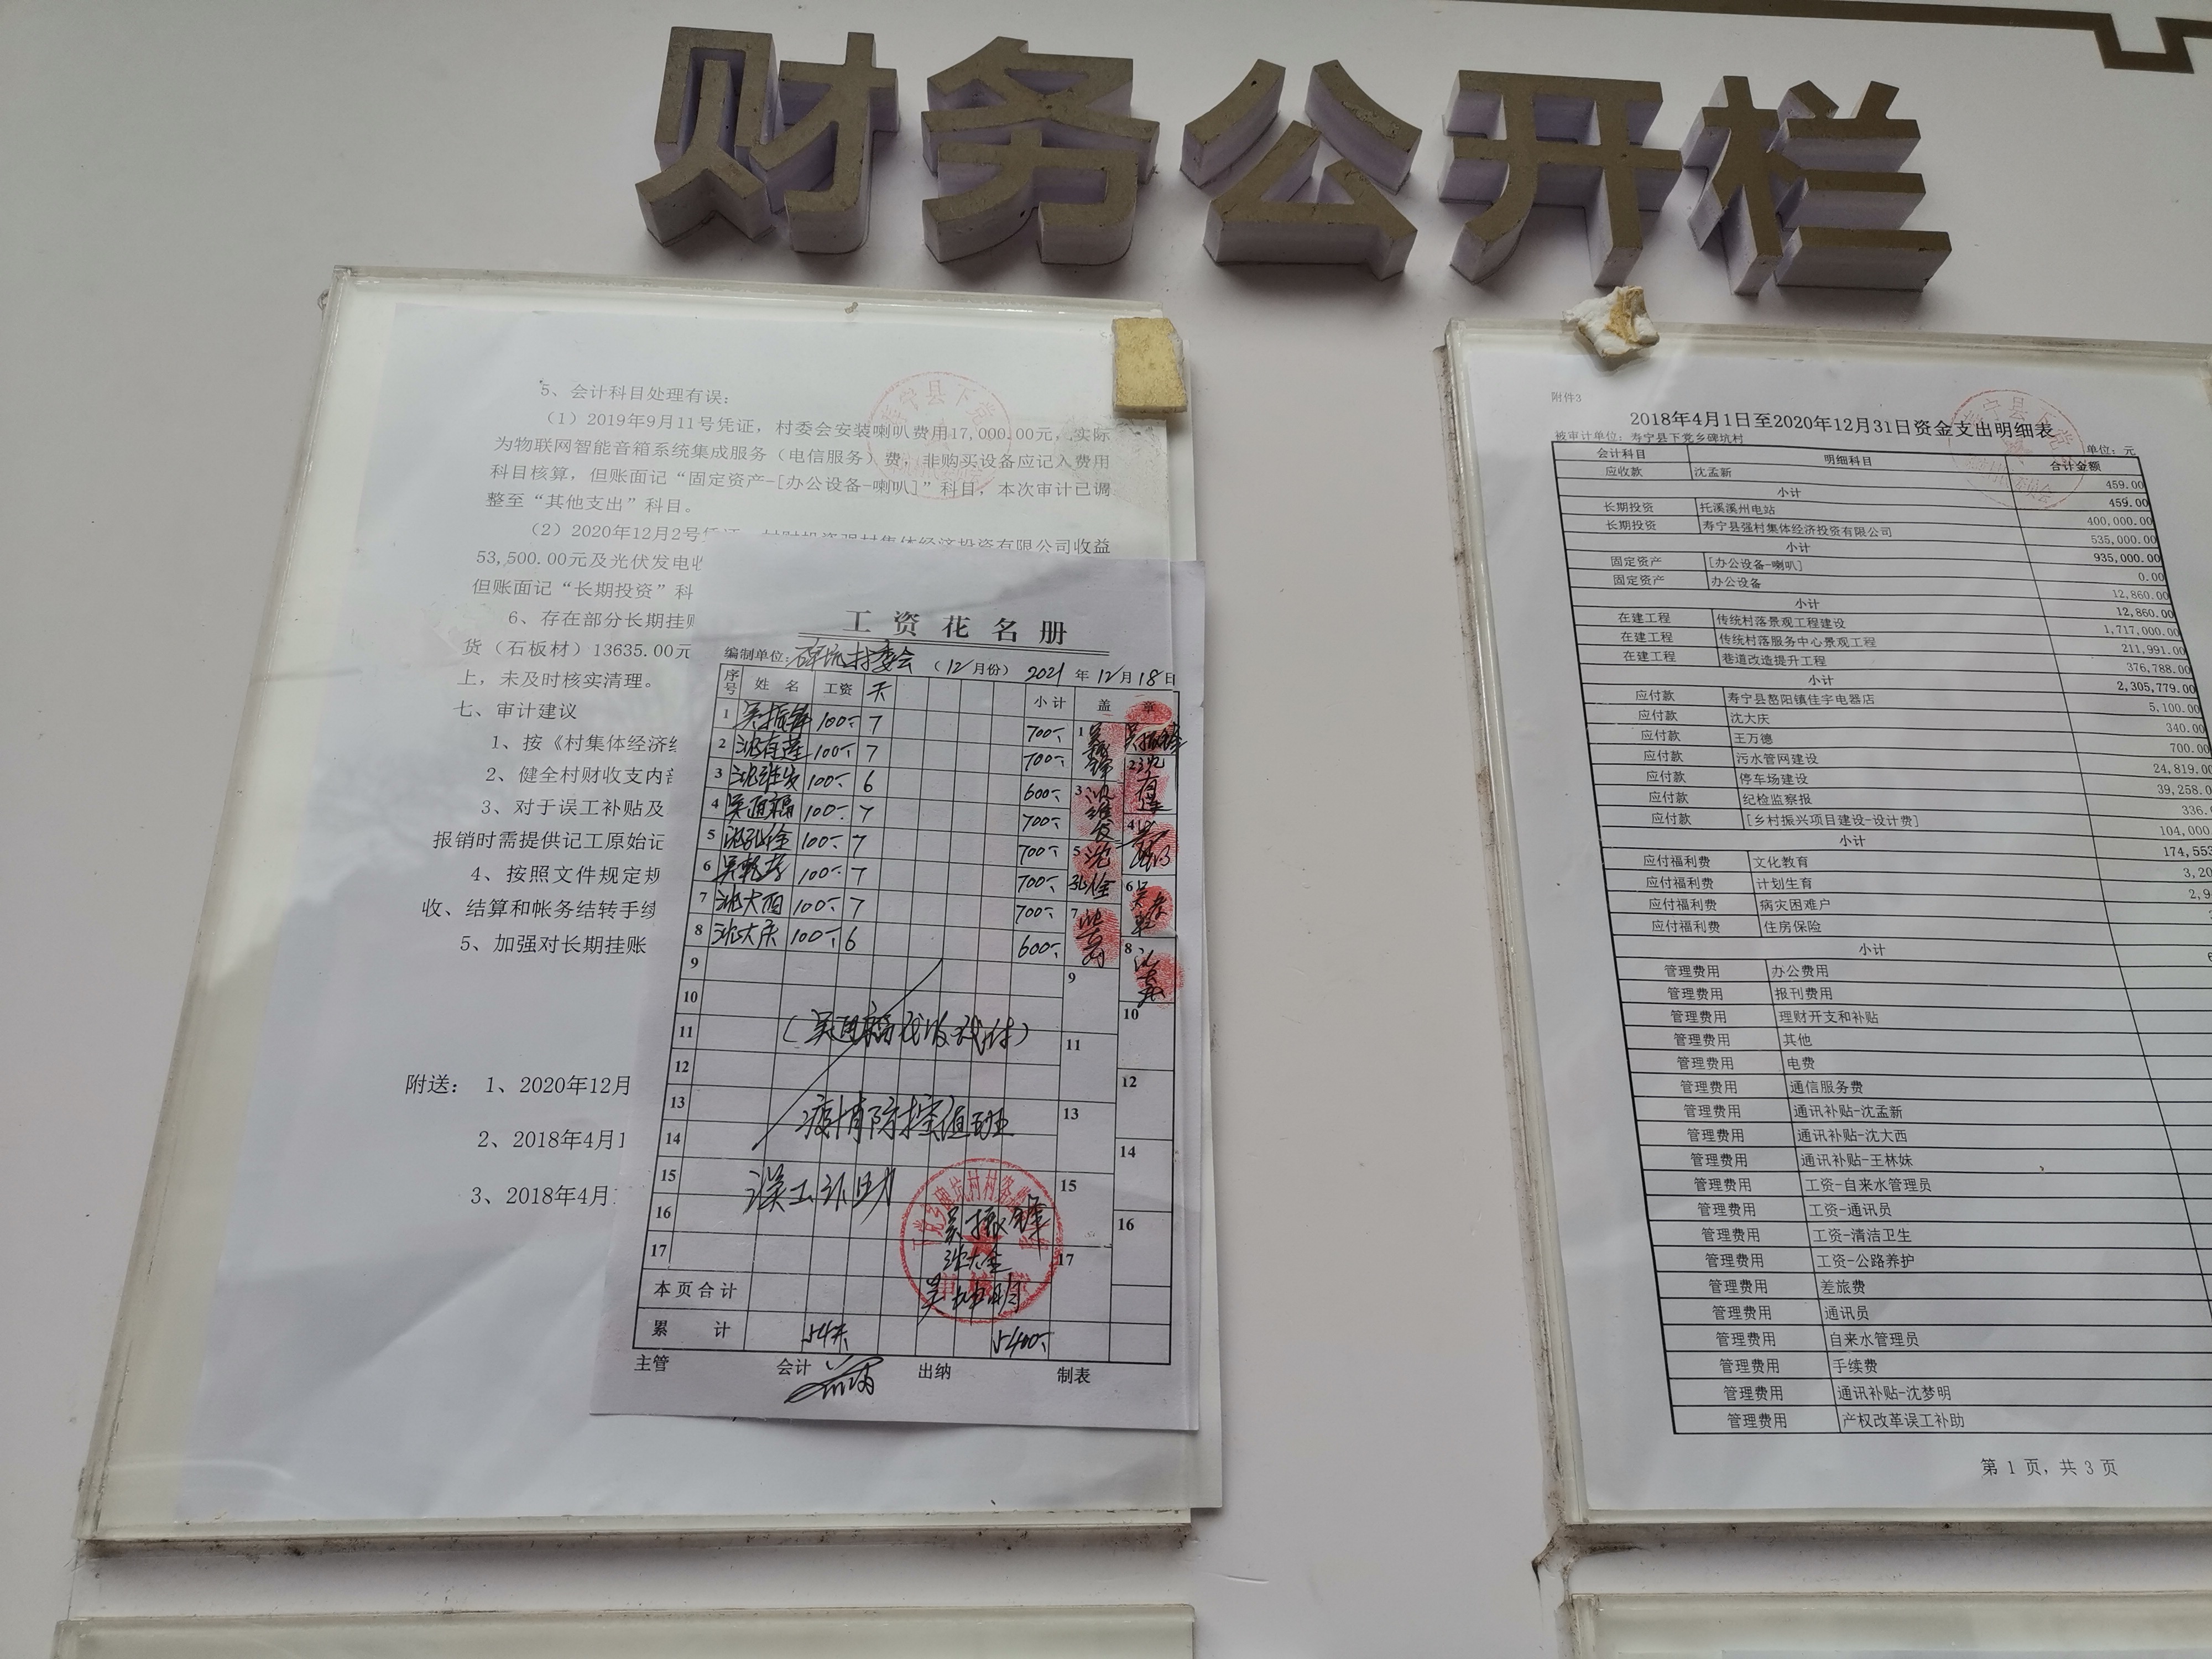 财务公开栏
5、会计科目处理有误:
（1）2019年9月11号凭证，村委会安装喇叭费用17,000.00元，实际
为物联网智能音箱系统集成服务（电信服务）费，非购买设备应记入费用
科目核算，但账面记“固定资产-[办公设备-喇叭]”科目，本次审计已调
整至“其他支出”科目。
（2）2020年12月2号凭证，村财投资强村集体经济投资有限公司收益
53,500.00元及光伏发电收
但账面记“长期投资”科
6、存在部分长期挂账
货（石板材）13635.00元
上，未及时核实清理。
七、审计建议
1、按《村集体经济组
2、健全村财收支内部
3、对于误工补贴及
报销时需提供记工原始记
4、按照文件规定规
收、结算和帐务结转手续
5、加强对长期挂账
附送： 1、2020年12月
2、2018年4月1
3、2018年4月
工资花名册
编制单位: 碑坑村委会 （12月份） 2021年12月18日
序号 姓名 工资 天 小计 盖章
1 吴振锋 100 7 700
2 沈有莲 100 7 700
3 沈维发 100 6 600
4 吴通福 100 7 700
5 沈孔佺 100 7 700
6 100 7 700
7 沈大西 100 7 700
8 沈大庆 100 6 600
9
10
11
12
13
14
15
16
17
（吴通福代收代付）
疫情防控值班
误工补贴
吴振锋
沈大金
本页合计
累计 54天 5400
主管 会计 出纳 制表
附件3
2018年4月1日至2020年12月31日资金支出明细表
被审计单位: 寿宁县下党乡碑坑村 单位: 元
会计科目 明细科目 合计金额
应收款 沈孟新 459.00
小计 459.00
长期投资 托溪溪州电站 400,000.00
长期投资 寿宁县强村集体经济投资有限公司 535,000.00
小计 935,000.00
固定资产 [办公设备-喇叭] 0.00
固定资产 办公设备 12,860.00
小计 12,860.00
在建工程 传统村落景观工程建设 1,717,000.00
在建工程 传统村落服务中心景观工程 211,991.00
在建工程 巷道改造提升工程 376,788.00
小计 2,305,779.00
应付款 寿宁县鳌阳镇佳宇电器店 5,100.00
应付款 沈大庆 340.00
应付款 王万德 700.00
应付款 污水管网建设 24,819.0
应付款 停车场建设 39,258.0
应付款 纪检监察报 336.
应付款 [乡村振兴项目建设-设计费] 104,000
小计 174,553
应付福利费 文化教育 3,20
应付福利费 计划生育 2,9
应付福利费 病灾困难户
应付福利费 住房保险
小计
管理费用 办公费用
管理费用 报刊费用
管理费用 理财开支和补贴
管理费用 其他
管理费用 电费
管理费用 通信服务费
管理费用 通讯补贴-沈孟新
管理费用 通讯补贴-沈大西
管理费用 通讯补贴-王林妹
管理费用 工资-自来水管理员
管理费用 工资-通讯员
管理费用 工资-清洁卫生
管理费用 工资-公路养护
管理费用 差旅费
管理费用 通讯员
管理费用 自来水管理员
管理费用 手续费
管理费用 通讯补贴-沈梦明
管理费用 产权改革误工补助
第 1 页, 共 3 页